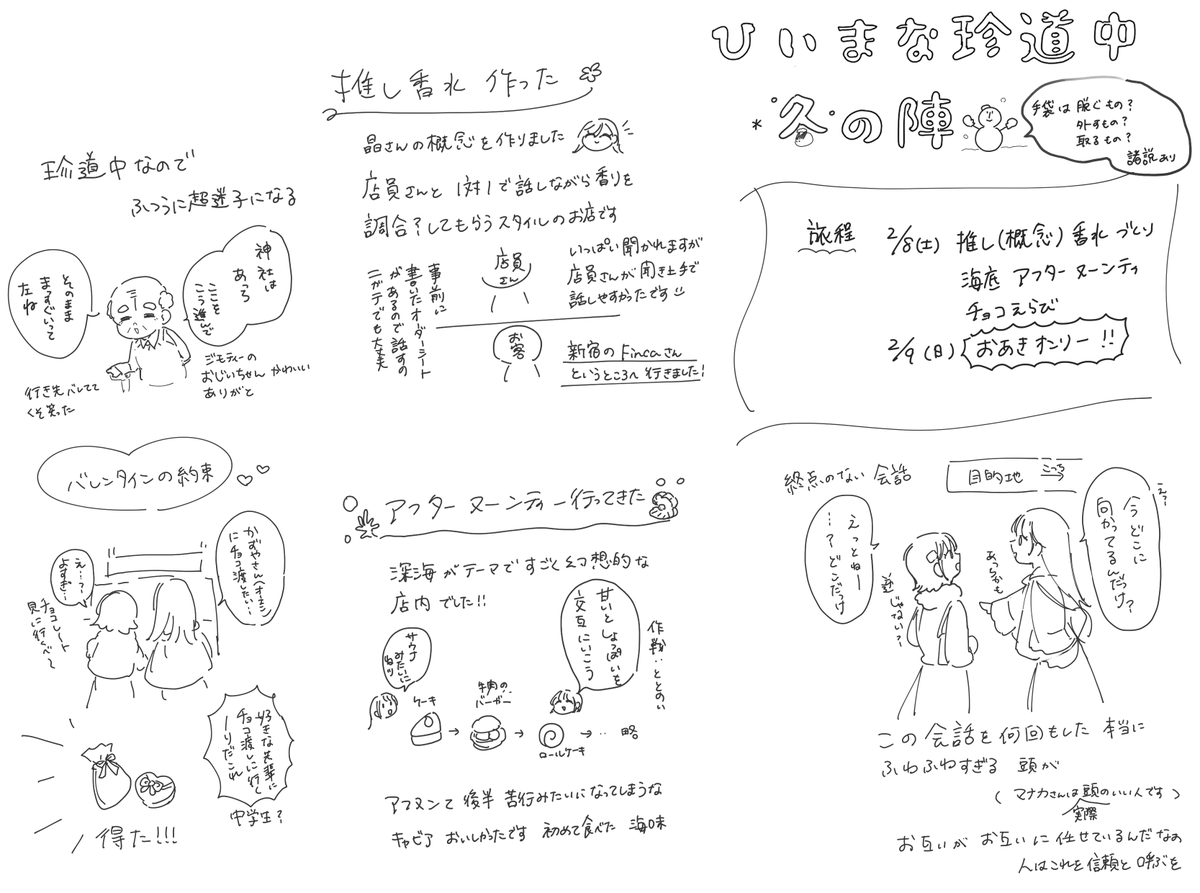 ひいまな珍道中
冬の陣
手袋は脱ぐもの?
外すもの?
取るもの?
諸説あり
旅程
2/8(土) 推し(概念)香水づくり
海底 アフターヌーンティ
チョコえらび
2/9(日) おあきオンリー!!
終点のない会話
目的地 こっち
え?
今どこに
向かってるんだっけ?
あっちかも
えっとねー
…?どこだっけ
逆じゃない?
この会話を何回もした 本当に
ふわふわすぎる 頭が
(マナカさんは頭のいい人です)
実際
お互いがお互いに任せているんだなの
人はこれを信頼と呼ぶを
推し香水 作った
晶さんの概念を作りました
店員さんと1対1で話しながら香りを
調合?してもらうスタイルのお店です
事前に
書いたオーダーシート
があるので話すの
ニガテでも大丈夫
店員
さん
お客
いっぱい聞かれますが
店員さんが聞き上手で
話しやすかったです
新宿のFincaさん
というところへ行きました!
アフターヌーンティー行ってきた
深海がテーマですごく幻想的な
店内でした!!
作戦:ととのい
甘いとしょっぱいを
交互にいこう
サウナ
みたいに
ねり
ケーキ
牛肉の
バーガー
ロールケーキ
→ ‥ 略
アフヌンて後半 苦行みたいになってしまうな
キャビア おいしかったです 初めて食べた 海味
珍道中なので
ふつうに超迷子になる
神社は
あっち
ここを
こう進んで
そのまま
まっすぐいって
左ね
ジモティーの
おじいちゃん かわいい
ありがと
行き先バレてて
くそ笑った
バレンタインの約束
かずやさん(オーキシ)
にチョコ渡したい…
え…?
よすぎ…
チョコレート
見に行くべ〜
好きな先輩に
チョコ渡しに行く
ーりだこれ
中学生?
得た!!!